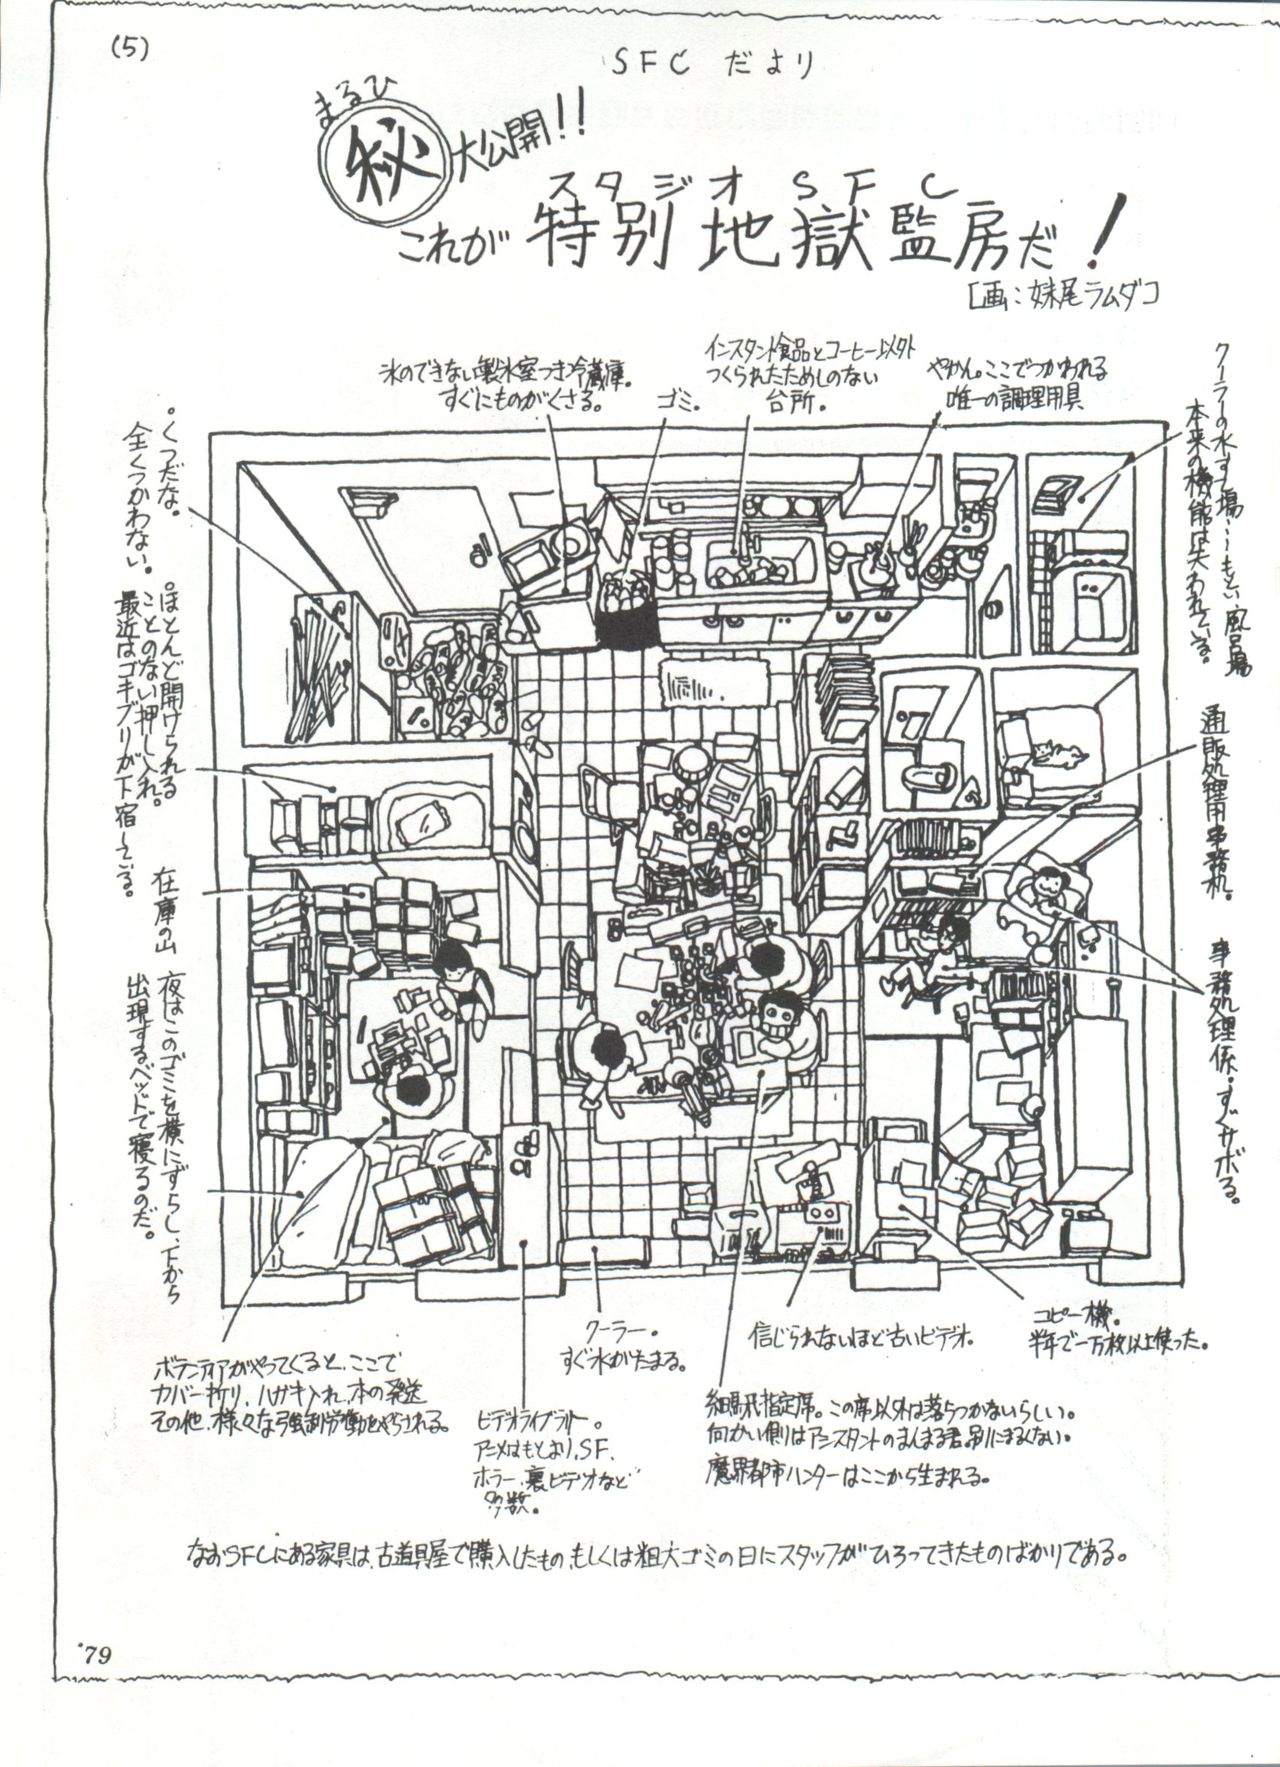 (5)
SFC だより
まるひ
秘 大公開!!
スタジオSFC
これが特別地獄監房だ!
[画:妹尾ラムダコ
氷のできない製氷室つき冷蔵庫。
すぐにものがくさる。
ゴミ。
インスタント食品とコーヒー以外
つくられたためしのない
台所。
やかん。ここでつかわれる
唯一の調理用具
クーラーの水すて場……もとい風呂場
本来の機能は失われている。
通販処理用事務机。
事務処理係。すぐサボる。
くつだな。
全くつかわない。
ほとんど開けられる
ことのない押し入れ。
最近はゴキブリが下宿している。
在庫の山
夜はこのゴミを横にずらし、下から
出現するベッドで寝るのだ。
ボランティアがやってくると、ここで
カバー折り、ハガキ入れ、本の発送
その他、様々な強制労働をやらされる。
ビデオライブラリー。
アニメはもとより、SF、
ホラー、裏ビデオなど
多数。
クーラー。
すぐ水がたまる。
信じられないほど古いビデオ。
コピー機。
半年で一万枚以上使った。
細馬飛指定席。この席以外は落ちつかないらしい。
向かい側はアシスタントのまんまる君。別にまるくない。
魔界都市ハンターはここから生まれる。
なおSFCにある家具は、古道具屋で購入したもの、もしくは粗大ゴミの日にスタッフがひろってきたものばかりである。
79